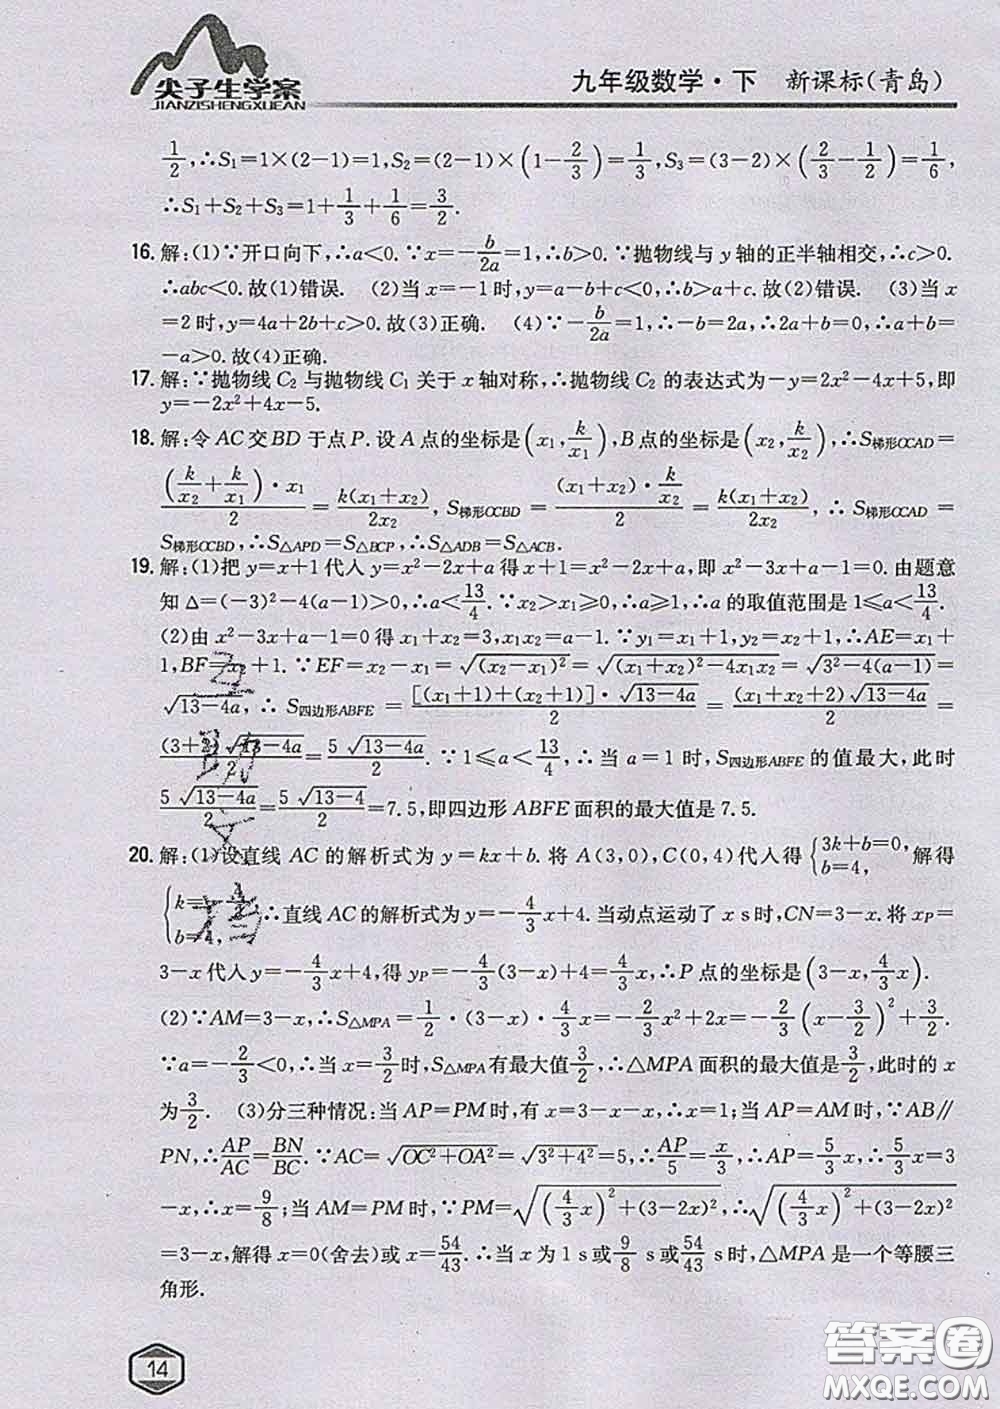 尖子生学案
JIANZISHENGXUEAN
九年级数学·下 新课标(青岛)
1/2,∴S₁=1×(2−1)=1,S₂=(2−1)×(1−2/3)=1/3,S₃=(3−2)×(2/3−1/2)=1/6,
∴S₁+S₂+S₃=1+1/3+1/6=3/2.
16.解:(1)∵开口向下,∴a<0.∵x=−b/2a=1,∴b>0.∵抛物线与y轴的正半轴相交,∴c>0.
∴abc<0.故(1)错误. (2)当x=−1时,y=a−b+c<0,∴b>a+c.故(2)错误. (3)当x
=2时,y=4a+2b+c>0.故(3)正确. (4)∵−b/2a=1,∴−b=2a,∴2a+b=0,∴a+b=
−a>0.故(4)正确.
17.解:∵抛物线C₂与抛物线C₁关于x轴对称,∴抛物线C₂的表达式为−y=2x²−4x+5,即
y=−2x²+4x−5.
18.解:令AC交BD于点P.设A点的坐标是(x₁,k/x₁),B点的坐标是(x₂,k/x₂),∴S梯形OCAD=
(k/x₂+k/x₁)·x₁/2=k(x₁+x₂)/2x₂,S梯形OCBD=(x₁+x₂)·k/x₂/2=k(x₁+x₂)/2x₂,∴S梯形OCAD=
S梯形OCBD,∴S△APD=S△BCP,∴S△ADB=S△ACB.
19.解:(1)把y=x+1代入y=x²−2x+a得x+1=x²−2x+a,即x²−3x+a−1=0.由题意
知Δ=(−3)²−4(a−1)>0,∴a<13/4.∵x₂>x₁≥0,∴a≥1,∴a的取值范围是1≤a<13/4.
(2)由x²−3x+a−1=0得x₁+x₂=3,x₁x₂=a−1.∵y₁=x₁+1,y₂=x₂+1,∴AE=x₁+
1,BF=x₂+1.∵EF=x₂−x₁=√(x₂−x₁)²=√(x₁+x₂)²−4x₁x₂=√3²−4(a−1)=
√13−4a,∴S四边形ABFE=[(x₁+1)+(x₂+1)]·√13−4a/2=(x₁+x₂+2)√13−4a/2=
(3+2)√13−4a/2=5√13−4a/2.∵1≤a<13/4,∴当a=1时,S四边形ABFE的值最大,此时
5√13−4a/2=5√13−4/2=7.5,即四边形ABFE面积的最大值是7.5.
20.解:(1)设直线AC的解析式为y=kx+b.将A(3,0),C(0,4)代入得{3k+b=0, b=4,解得
{k=−4/3, b=4,∴直线AC的解析式为y=−4/3x+4.当动点运动了x s时,CN=3−x.将xP=
3−x代入y=−4/3x+4,得yP=−4/3(3−x)+4=4/3x,∴P点的坐标是(3−x,4/3x).
(2)∵AM=3−x,∴S△MPA=1/2·(3−x)·4/3x=−2/3x²+2x=−2/3(x−3/2)²+3/2.
∵a=−2/3<0,∴当x=3/2时,S△MPA有最大值3/2,∴△MPA面积的最大值是3/2,此时的x
为3/2. (3)分三种情况:当AP=PM时,有x=3−x−x,∴x=1;当AP=AM时,∵AB∥
PN,∴AP/AC=BN/BC.∵AC=√OC²+OA²=√3²+4²=5,∴AP/5=x/3,∴AP=5/3x,∴5/3x=3
−x,∴x=9/8;当AM=PM时,∵PM=√(4/3x)²+(3−2x)²,∴√(4/3x)²+(3−2x)²
=3−x,解得x=0(舍去)或x=54/43.∴当x为1 s或9/8 s或54/43 s时,△MPA是一个等腰三
角形.
互助文档
14
答案圈
MXQE.COM